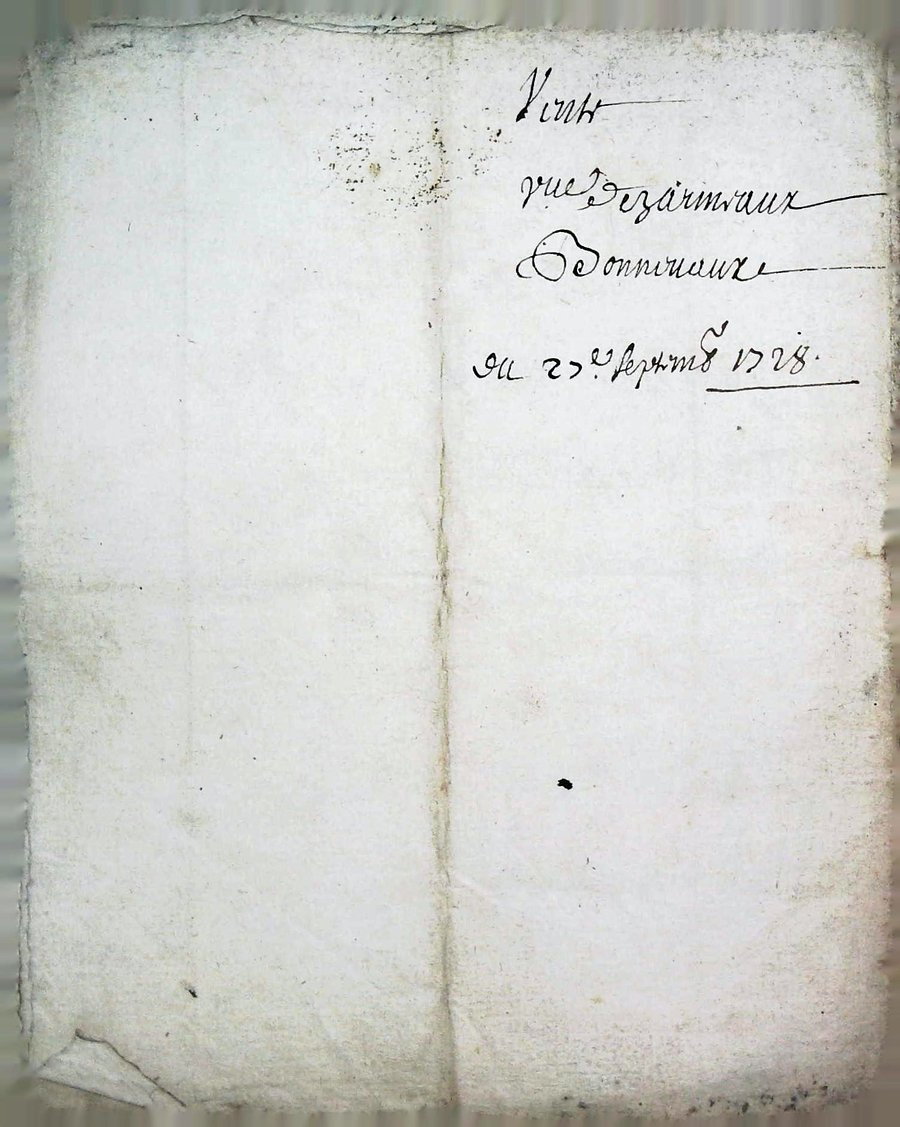 Vente
Dezarmeaux
Bonnevaux
du 27e Septembr 1728.